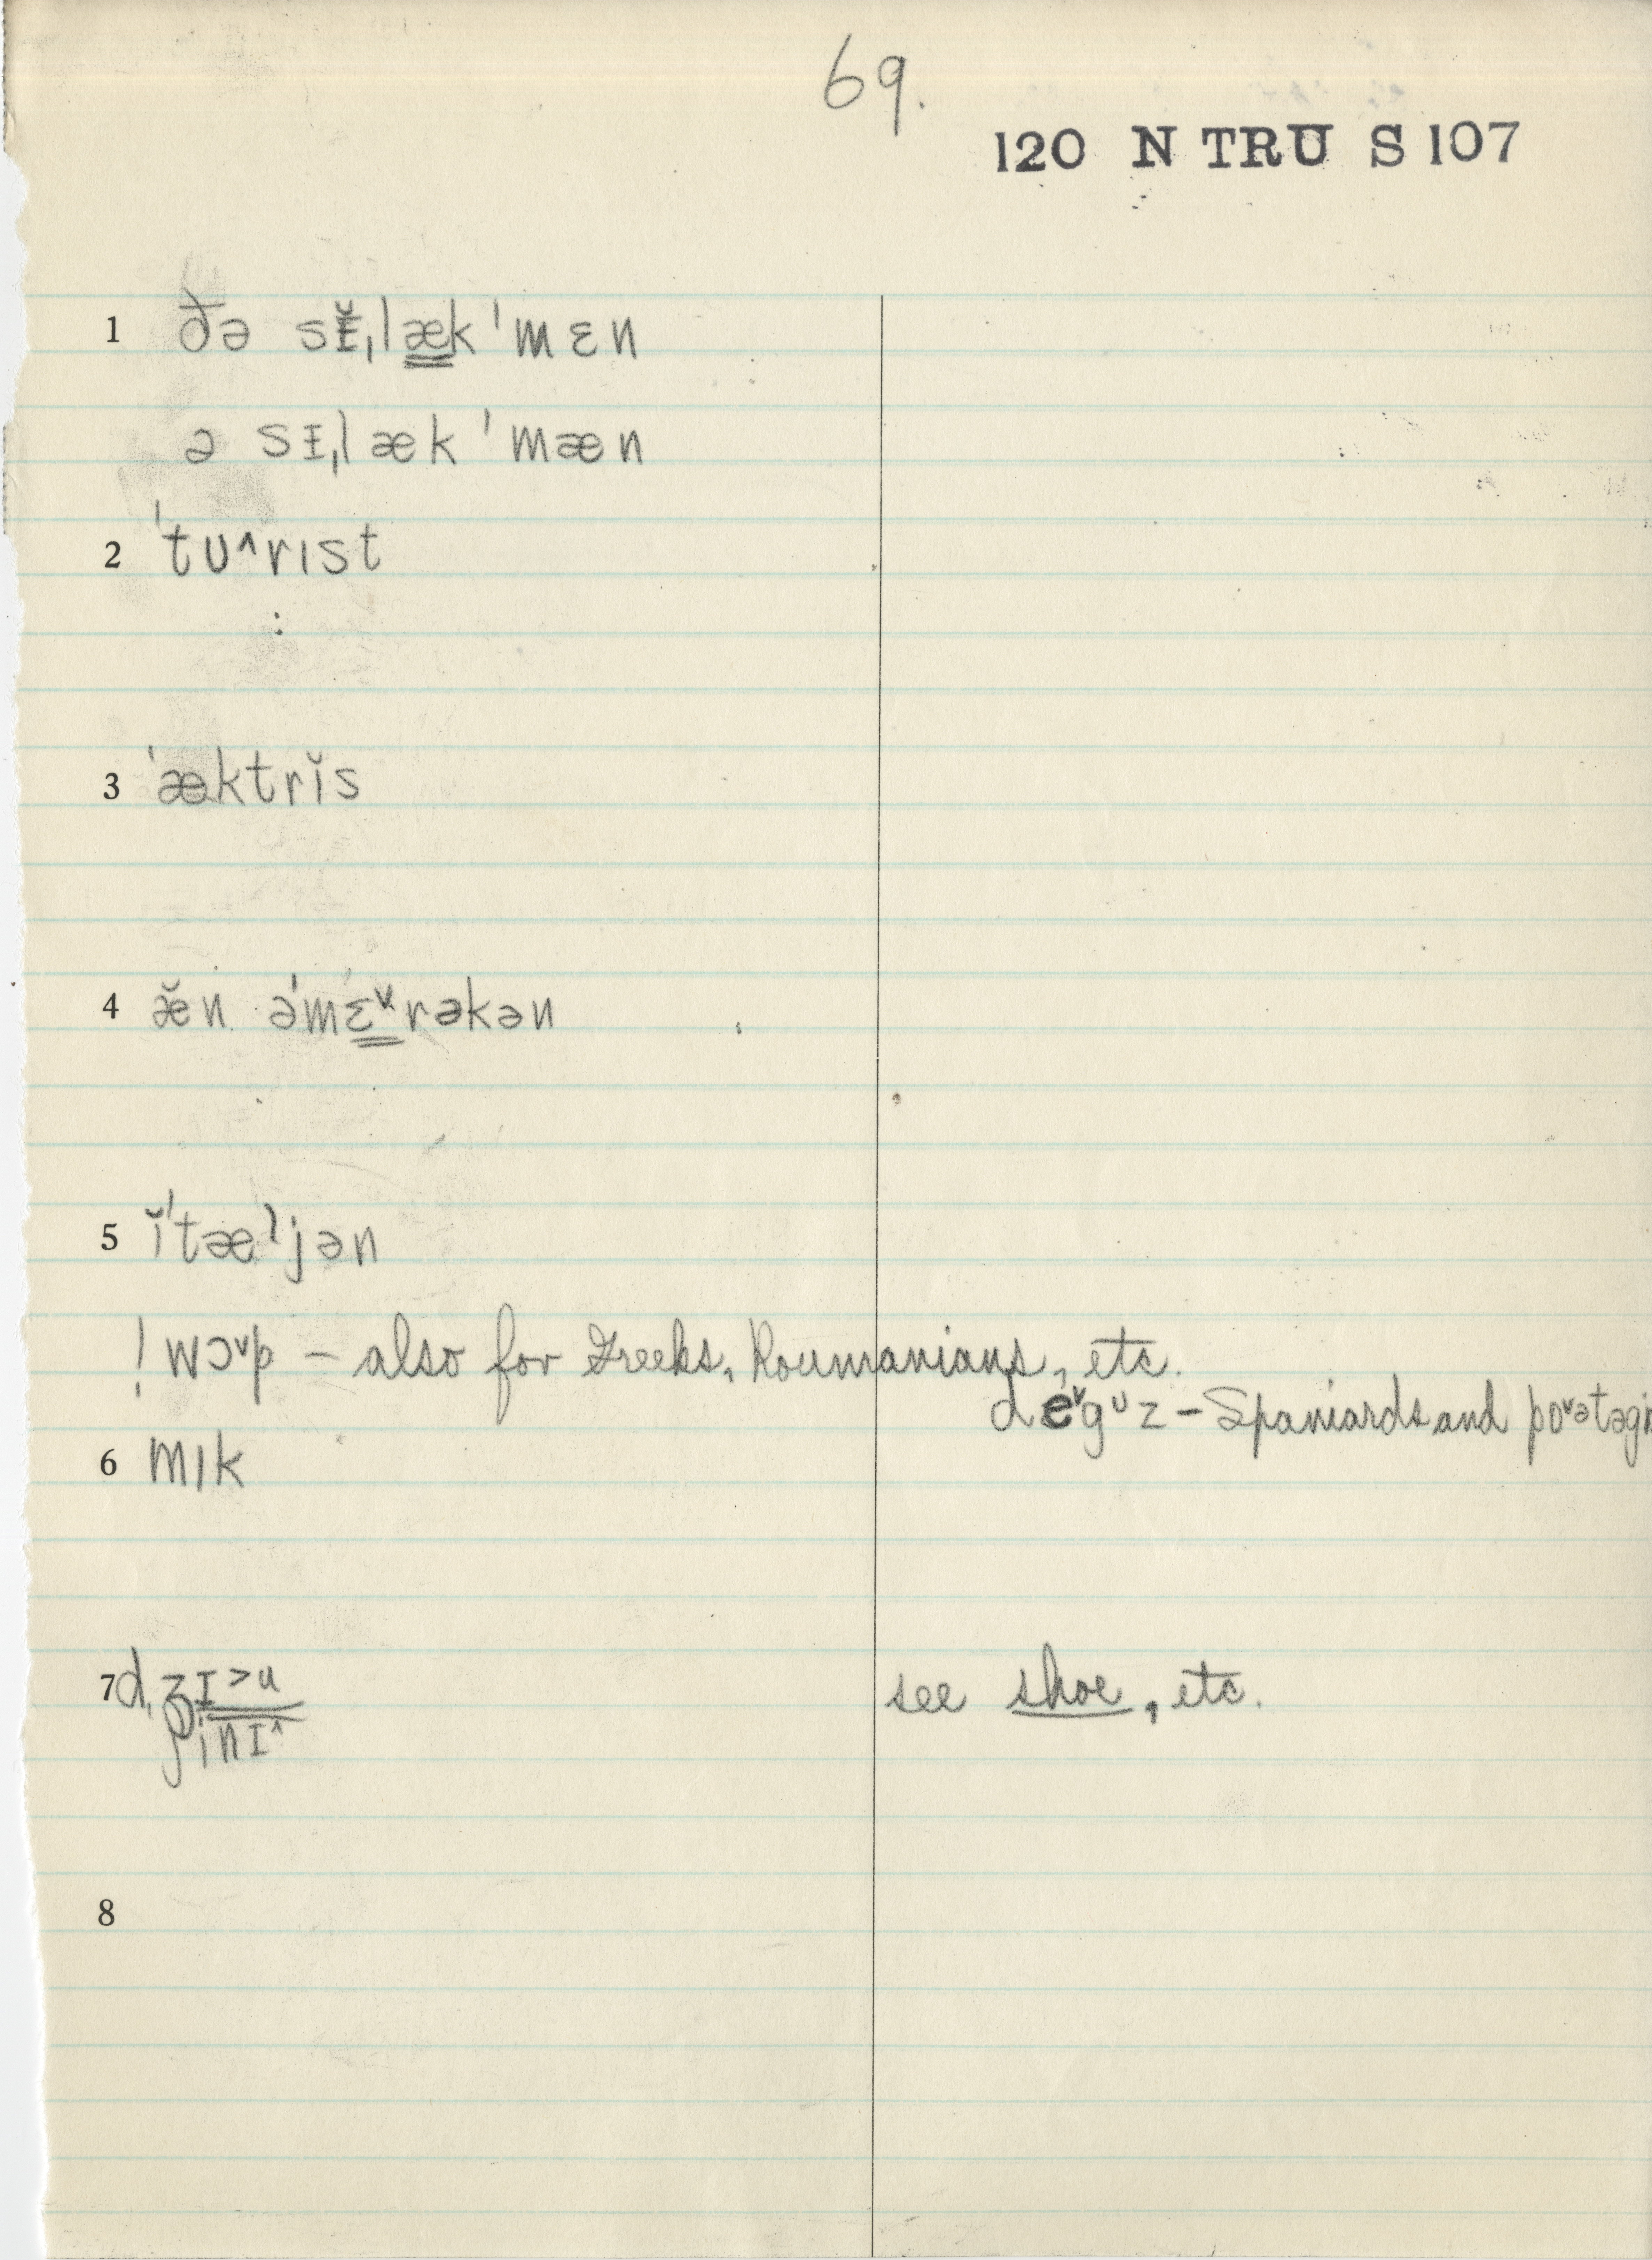 69.
120 N TRU S 107
1 ðə sɪ̆ˌlæk ˈmɛn
ə sɪˌlæk ˈmæn
2 ˈtʊ^rɪst
3 ˈæktrɪ̆s
4 æ̆n əˈmɛ˅rəkən
5 ɪ̆ˈtæljən
! wɔ˅p – also for Greeks, Roumanians, etc.
de˅gᶷz – Spaniards and po˅ətəgi
6 mɪk
7 dʒɪ>u
ʃinɪ^
see shoe, etc.
8